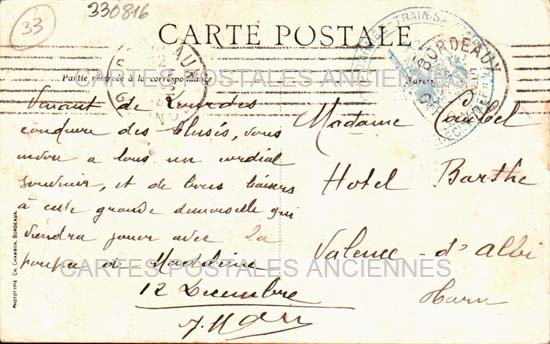 33
330816
CARTE POSTALE
TRAIN S
BORDEAUX
Partie réservée à la correspondance
Adresse
CARTES POSTALES ANCIENNES
Venant de Lourdes
conduire des blessés, vous
à tous un cordial
souvenir, et de bons baisers
à cette grande demoiselle qui
viendra jouer avec la
poupée de Madeleine
12 Decembre
Madame
Hotel Barthe
Valence - d'Albi
Tarn
CARTES POSTALES ANCIENNES
PHOTOTYPIE CH. CHAMBON, BORDEAUX